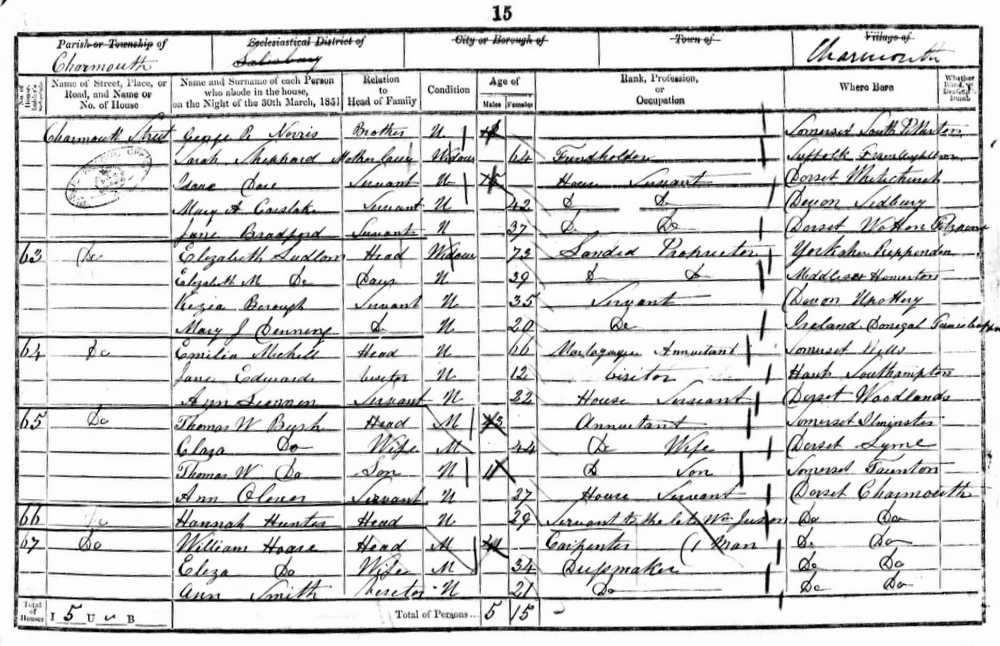 15
Parish or Township of Ecclesiastical District of City or Borough of Town of Village of
Charmouth Salisbury Charmouth
No. of House- Name of Street, Place, or Road, and Name or No. of House Name and Surname of each Person who abode in the house, on the Night of the 30th March, 1851 Relation to Head of Family Condition Age of Males Females Rank, Profession, or Occupation Where Born Whether Blind, or Deaf-and-Dumb
Charmouth Street George R Norris Brother U Somerset South Petherton
Sarah Sheppard Mother Widow 64 Fundholder Suffolk
Servant U House Servant Dorset Whitechurch
Mary A Carslake Servant U 42 D D Devon Sidbury
Jane Bradford Servant U 37 D Do Dorset Wotton Fitzpaine
63 Do Elizabeth Ludlow Head Widow 73 Landed Proprietor Yorkshire Ripponden
Elizabeth M Do Daur U 39 D D Middlesex Homerton
Kezia Borough Servant U 35 Servant Devon Upottery
Mary J Denning D U 20 Do Ireland Donegal
64 Do Emilia Michell Head U 66 Annuitant Somerset Wells
Jane Edwards Visitor U 12 Visitor Hants Southampton
Ann Servant U 22 House Servant Dorset Woodlands
65 Do Thomas W Bush Head M 43 Annuitant Somerset Ilminster
Eliza Do Wife M 44 Do Wife Dorset Lyme
Thomas W Do Son U 11 D Son Somerset Taunton
Ann Servant U 27 House Servant Dorset Charmouth
66 Do Hannah Hunter Head U 29 Servant to the late Wm Do Do
67 Do William Hoare Head M 41 Carpenter (1 Man Do Do
Eliza Do Wife M 34 Dressmaker Do Do
Ann Smith Visitor U 21 Do Do Do
Total of Houses I 5 U B Total of Persons... 5 15